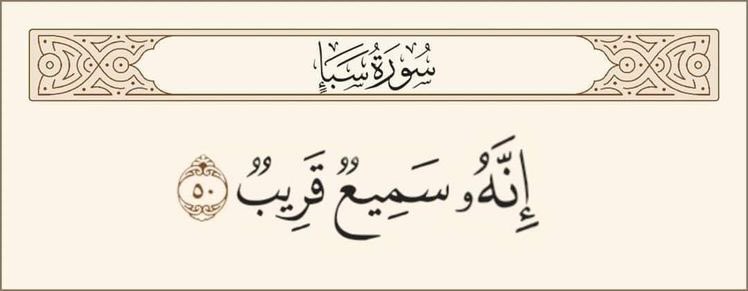 سُورَةُ سَبَإٍ
إِنَّهُۥ سَمِيعٌ قَرِيبٌ ٥٠